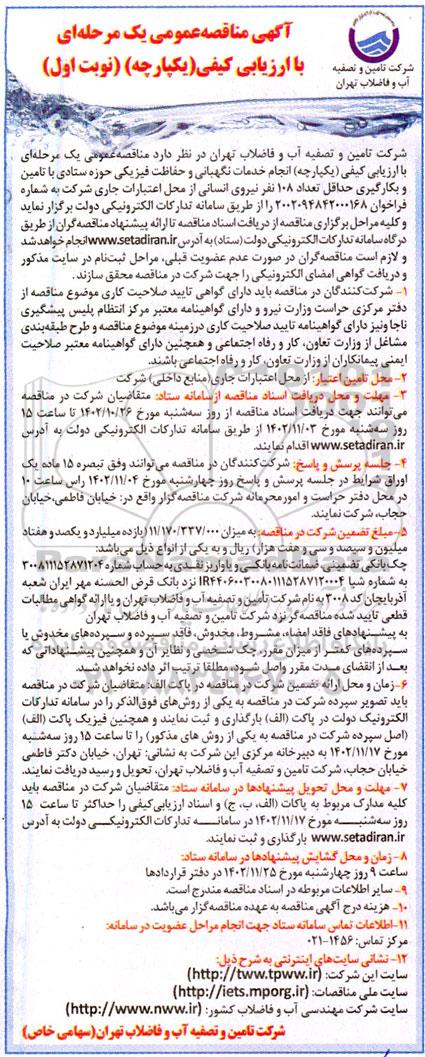 آگهی مناقصه‌عمومی یک مرحله‌ای
با ارزیابی کیفی(یکپارچه) (نوبت اول)
شرکت تامین و تصفیه
آب و فاضلاب تهران
شرکت تامین و تصفیه آب و فاضلاب تهران در نظر دارد مناقصه‌عمومی یک مرحله‌ای
با ارزیابی کیفی (یکپارچه) انجام خدمات نگهبانی و حفاظت فیزیکی حوزه ستادی با تامین
و بکارگیری حداقل تعداد ۱۰۸ نفر نیروی انسانی از محل اعتبارات جاری شرکت به شماره
فراخوان ۲۰۰۲۰۹۴۸۴۲۰۰۰۱۶۸ را از طریق سامانه تدارکات الکترونیکی دولت برگزار نماید
و کلیه مراحل برگزاری مناقصه از دریافت اسناد مناقصه تا ارائه پیشنهاد مناقصه‌گران از طریق
درگاه سامانه تدارکات الکترونیکی دولت (ستاد) به آدرس www.setadiran.ir انجام خواهد شد
و لازم است مناقصه‌گران در صورت عدم عضویت قبلی، مراحل ثبت‌نام در سایت مذکور
و دریافت گواهی امضای الکترونیکی را جهت شرکت در مناقصه محقق سازند.
۱- شرکت‌کنندگان در مناقصه باید دارای گواهی تایید صلاحیت کاری موضوع مناقصه از
دفتر مرکزی حراست وزارت نیرو و دارای گواهینامه معتبر مرکز انتظام پلیس پیشگیری
ناجا ونیز دارای گواهینامه تایید صلاحیت کاری درزمینه موضوع مناقصه و طرح طبقه‌بندی
مشاغل از وزارت تعاون، کار و رفاه اجتماعی و همچنین دارای گواهینامه معتبر صلاحیت
ایمنی پیمانکاران از وزارت تعاون، کار و رفاه اجتماعی باشند.
۲- محل تامین اعتبار: از محل اعتبارات جاری(منابع داخلی) شرکت
۳- مهلت و محل دریافت اسناد مناقصه ازسامانه ستاد: متقاضیان شرکت در مناقصه
می‌توانند جهت دریافت اسناد مناقصه از روز سه‌شنبه مورخ ۱۴۰۲/۱۰/۲۶ تا ساعت ۱۵
روز سه‌شنبه مورخ ۱۴۰۲/۱۱/۰۳ از طریق سامانه تدارکات الکترونیکی دولت به آدرس
www.setadiran.ir اقدام نمایند.
۴- جلسه پرسش و پاسخ: شرکت‌کنندگان در مناقصه می‌توانند وفق تبصره ۱۵ ماده یک
اوراق شرایط در جلسه پرسش و پاسخ روز چهارشنبه مورخ ۱۴۰۲/۱۱/۰۴ راس ساعت ۱۰
در محل دفتر حراست و امور محرمانه شرکت مناقصه‌گزار واقع در: خیابان فاطمی،خیابان
حجاب، شرکت نمایند.
۵- مبلغ تضمین شرکت در مناقصه: به میزان ۱۱/۱۷۰/۳۳۷/۰۰۰ (یازده میلیارد و یکصد و هفتاد
میلیون و سیصد و سی و هفت هزار) ریال و به یکی از انواع ذیل می‌باشد:
چک بانکی تضمینی، ضمانت‌نامه بانکی و یا واریز نقدی به حساب شماره ۳۰۰۸۱۱۱۵۲۸۷۱۲۰۴
به شماره شبا IR۴۴۰۶۰۰۳۰۰۸۰۱۱۱۵۲۸۷۱۲۰۰۴ نزد بانک قرض الحسنه مهر ایران شعبه
آذربایجان کد ۳۰۰۸ به نام شرکت تأمین و تصفیه آب و فاضلاب تهران و یا ارائه گواهی مطالبات
قطعی تایید شده مناقصه‌گر نزد شرکت تامین و تصفیه آب و فاضلاب تهران
به پیشنهادهای فاقد امضاء، مشروط، مخدوش، فاقد سپرده و سپرده‌های مخدوش یا
سپرده‌های کمتر از میزان مقرر، چک شخصی و نظایر آن و همچنین پیشنهاداتی که
بعد از انقضای مدت مقرر واصل شود، مطلقا ترتیب اثر داده نخواهد شد.
۶- زمان و محل ارائه تضمین شرکت در مناقصه در پاکت الف: متقاضیان شرکت در مناقصه
باید تصویر سپرده شرکت در مناقصه به یکی از روش‌های فوق‌الذکر را در سامانه تدارکات
الکترونیک دولت در پاکت (الف) بارگذاری و ثبت نمایند و همچنین فیزیک پاکت (الف)
(اصل سپرده شرکت در مناقصه به یکی از روش های مذکور) را تا ساعت ۱۵ روز سه‌شنبه
مورخ ۱۴۰۲/۱۱/۱۷ به دبیرخانه مرکزی این شرکت به نشانی: تهران، خیابان دکتر فاطمی
خیابان حجاب، شرکت تامین و تصفیه آب و فاضلاب تهران، تحویل و رسید دریافت نمایند.
۷- مهلت و محل تحویل پیشنهادها در سامانه ستاد: متقاضیان شرکت در مناقصه باید
کلیه مدارک مربوط به پاکات (الف، ب، ج) و اسناد ارزیابی‌کیفی را حداکثر تا ساعت ۱۵
روز سه‌شنبه مورخ ۱۴۰۲/۱۱/۱۷ در سامانه تدارکات الکترونیکی دولت به آدرس
www.setadiran.ir بارگذاری و ثبت نمایند.
۸- زمان و محل گشایش پیشنهادها در سامانه ستاد:
ساعت ۹ روز چهارشنبه مورخ ۱۴۰۲/۱۱/۲۵ در دفتر قراردادها
۹- سایر اطلاعات مربوطه در اسناد مناقصه مندرج است.
۱۰- هزینه درج آگهی مناقصه به عهده مناقصه‌گزار می‌باشد.
۱۱-اطلاعات تماس سامانه ستاد جهت انجام مراحل عضویت در سامانه:
مرکز تماس: ۱۴۵۶-۰۲۱
۱۲- نشانی سایت‌های اینترنتی به شرح ذیل:
سایت این شرکت: (http://tww.tpww.ir)
سایت ملی مناقصات: (http://iets.mporg.ir)
سایت شرکت مهندسی آب و فاضلاب کشور: (http://www.nww.ir)
شرکت تامین و تصفیه آب و فاضلاب تهران(سهامی خاص)